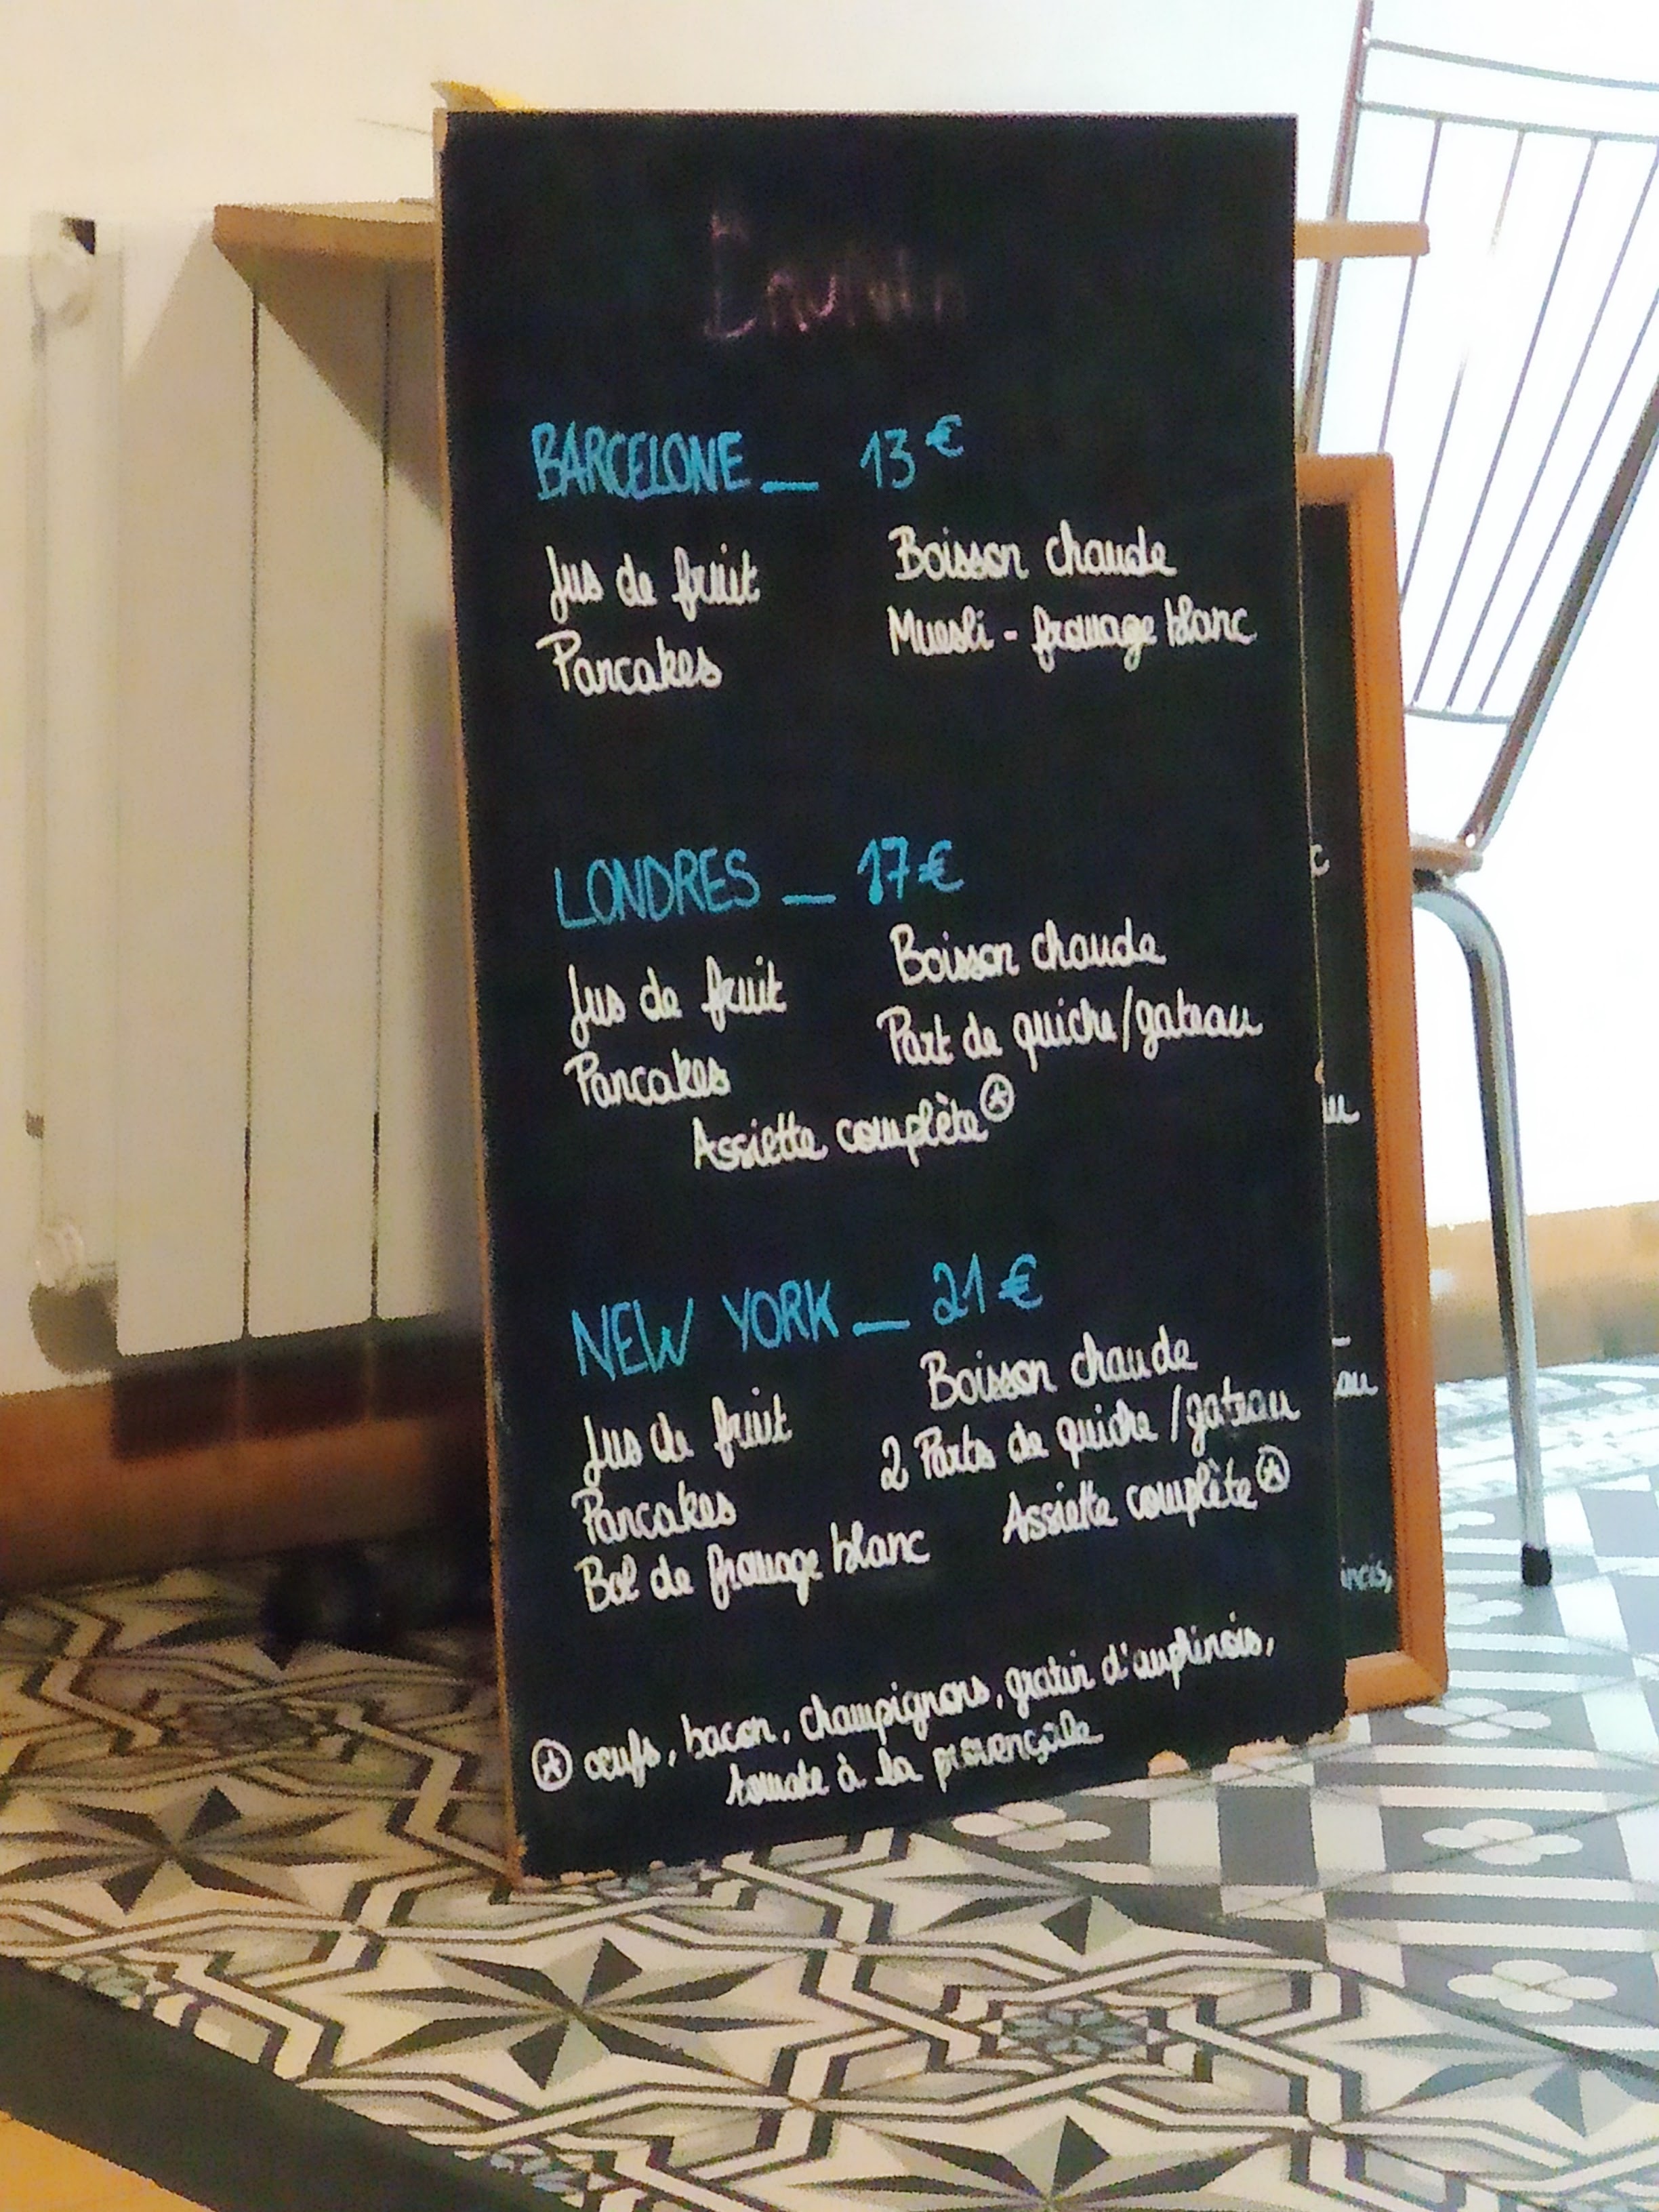 BARCELONE _ 13€
Jus de fruit
Boisson chaude
Pancakes
Muesli - fromage blanc
LONDRES _ 17€
Jus de fruit
Boisson chaude
Pancakes
Part de quiche/gateau
Assiette complète⊛
NEW YORK _ 21€
Jus de fruit
Boisson chaude
Pancakes
2 Parts de quiche/gateau
Bol de fromage blanc
Assiette complète⊛
⊛ oeufs, bacon, champignons, gratin d'auphinois,
tomate à la provençale